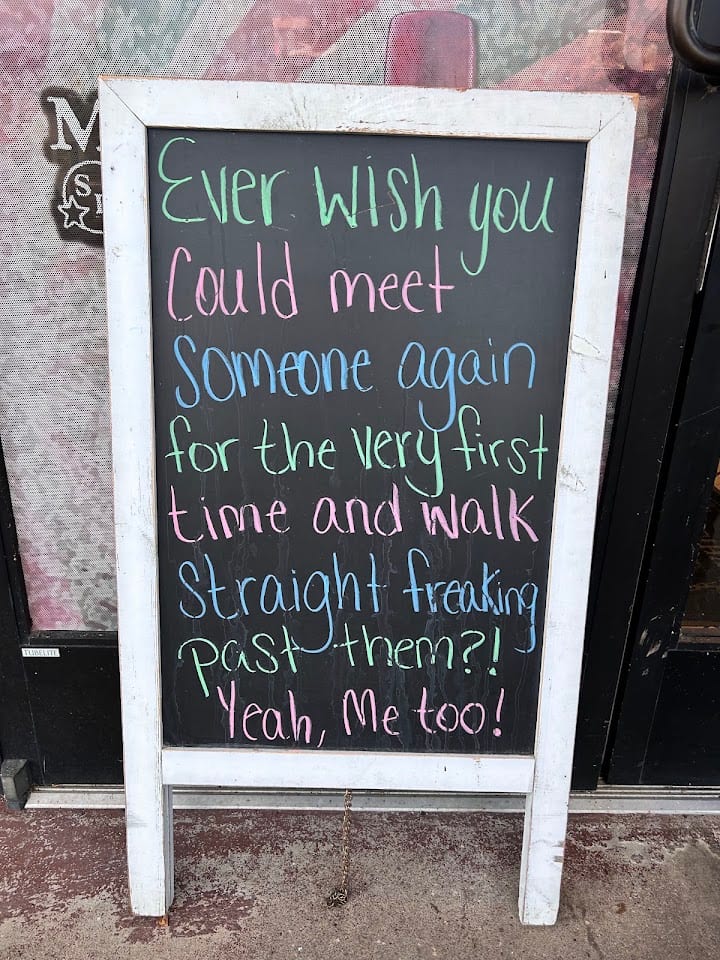 Ever wish you
Could meet
Someone again
for the very first
time and walk
straight freaking
past them?!
Yeah, Me too!
TUBELITE
M
S